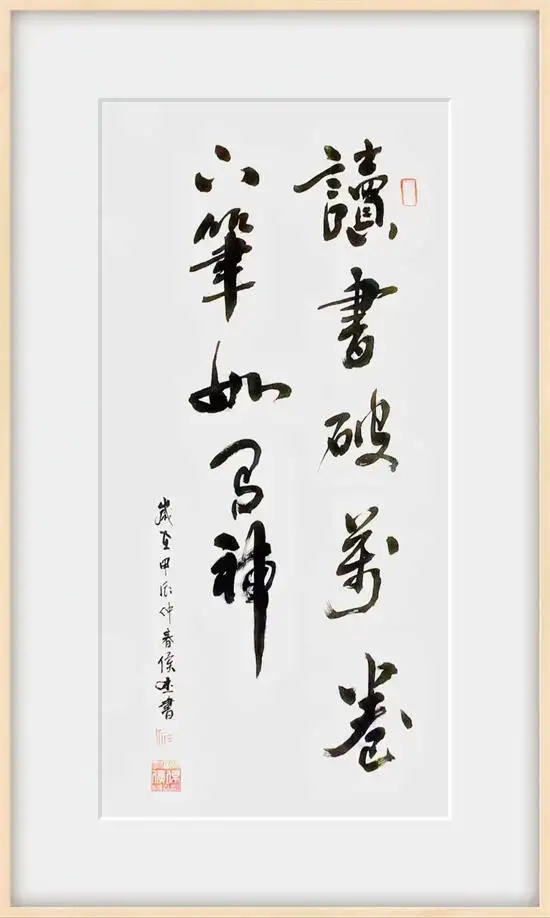 讀書破萬卷
下筆如有神
歲在甲辰仲春侯書